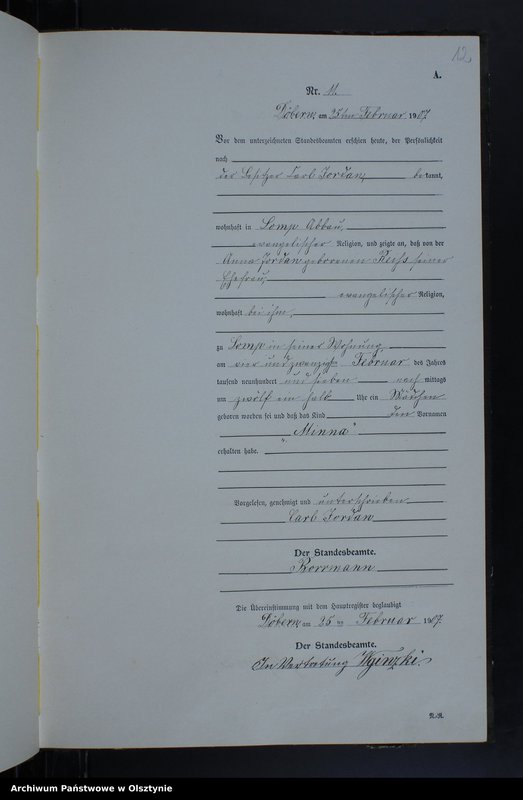 12
A.
Nr. 11.
Döbern, am 25ten Februar 1907.
Vor dem unterzeichneten Standesbeamten erschien heute, der Persönlichkeit
nach
der Besitzer Carl Jordan, bekannt,
wohnhaft in Lomp Abbau,
evangelischer Religion, und zeigte an, daß von der
Anna Jordan geborenen Kuhs seiner
Ehefrau,
evangelischer Religion,
wohnhaft bei ihm,
zu Lomp in seiner Wohnung,
am vier und zwanzigten Februar des Jahres
tausend neunhundert und sieben nach mittags
um zwölf ein halb Uhr ein Mädchen
geboren worden sei und daß das Kind den Vornamen
„Minna“
erhalten habe.
Vorgelesen, genehmigt und unterschrieben
Carl Jordan
Der Standesbeamte.
Borrmann
Die Übereinstimmung mit dem Hauptregister beglaubigt
Döbern, am 25 ten Februar 1907.
Der Standesbeamte.
In Vertretung
Archiwum Państwowe w Olsztynie